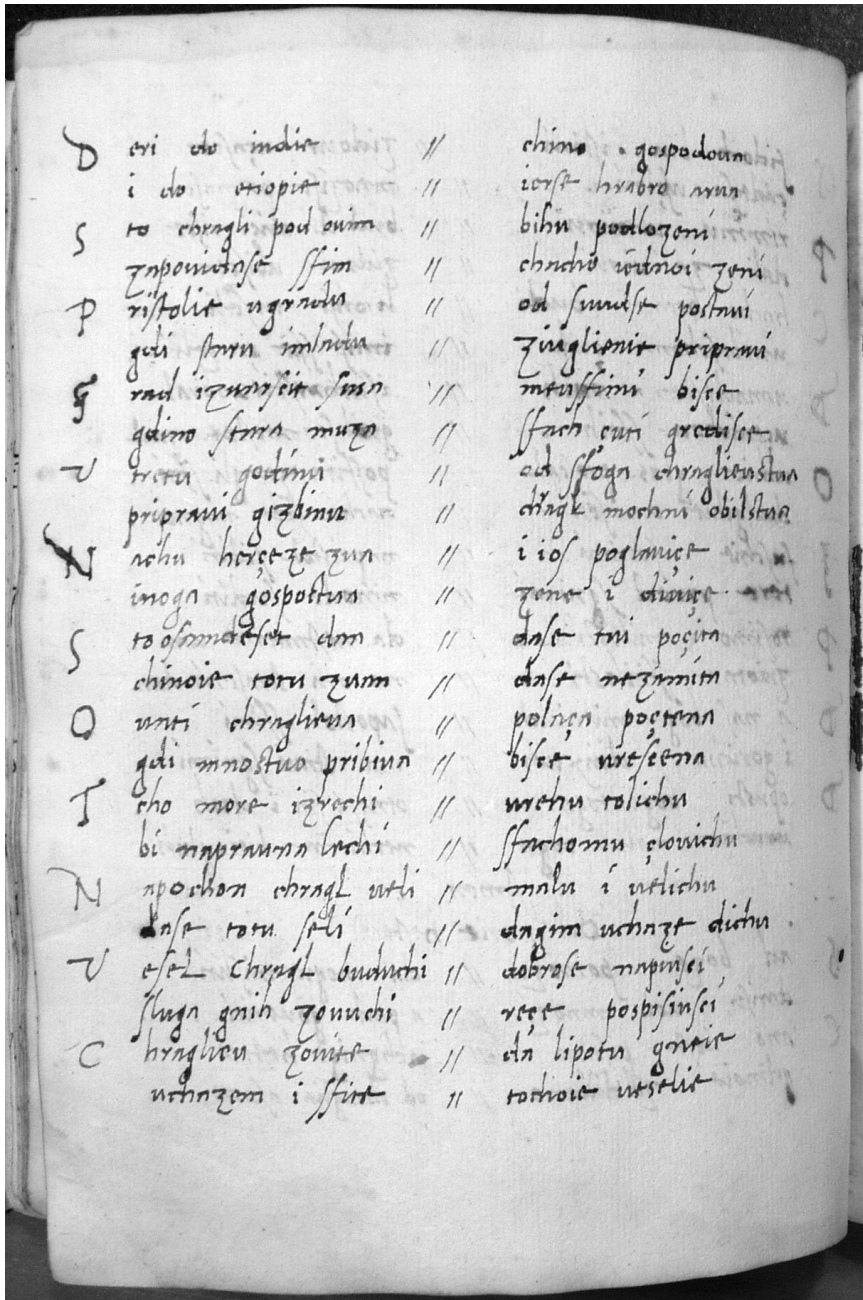 D eri do indie // chino gospodova
i do etiopie // ierse hrabro arva
S to chragli pod ovim // bihu podlozeni
zapovidase sfim // chacho iednoi zeni
P ristolie ugradu // od suudse postavi
gdi staru imladu // ziuglienie pripravi
G rad izvarscit susa // meusfimi bisce
gdino stara muza // sfach çuti gredisce
V tretu godinu // od sfoga chraglieustva
pripravi gizbinu // chragl mochni obilstva
N achu herçeze zva // i ios poglaviçe
inoga gospostva // zene i diviçe
S to osamdeset dan // dase tui poçita
chinoie totu zvan // dase nezamita
O vati chraglieva // polaça poçtena
gdi mnostvo pribiva // bisce uresçena
T cho more izrechi // urehu tolichu
bi napravna lechi // sfachomu çlovichu
N apochon chragl veli // malu i velichu
dase totu seli // dagim uchaze dichu
V esel chragl buduchi // dobrose napivsci
sluga gnih zovuchi // reçe pospisivsci
C hraglicu zovite // da lipotu gneie
uchazem i sfite // tochoie veselie